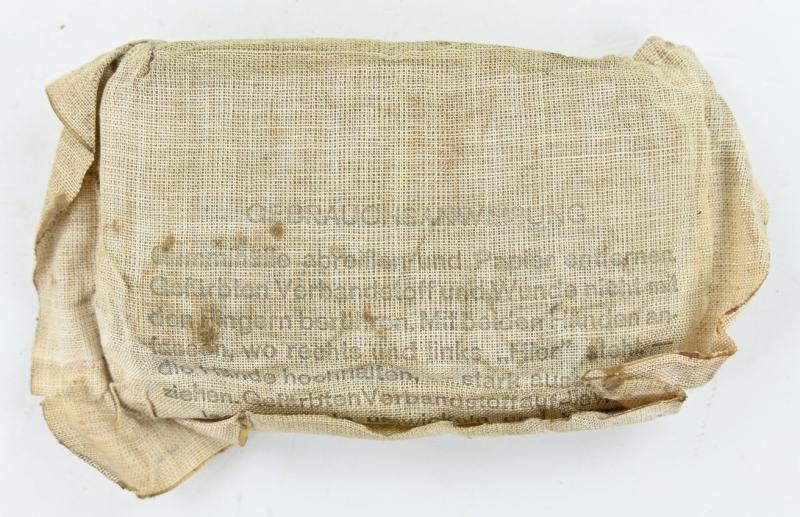 GEBRAUCHSANWEISUNG
abreißen und Papier entfernen.
Gefärbten Verbandstoff und Wunde nicht mit
den Fingern berühren. Mit beiden Händen an-
fassen, wo rechts und links „Hier“ steht
die Hände hochhalten, stark
ziehen. Gefärbten Verbandstoff auf